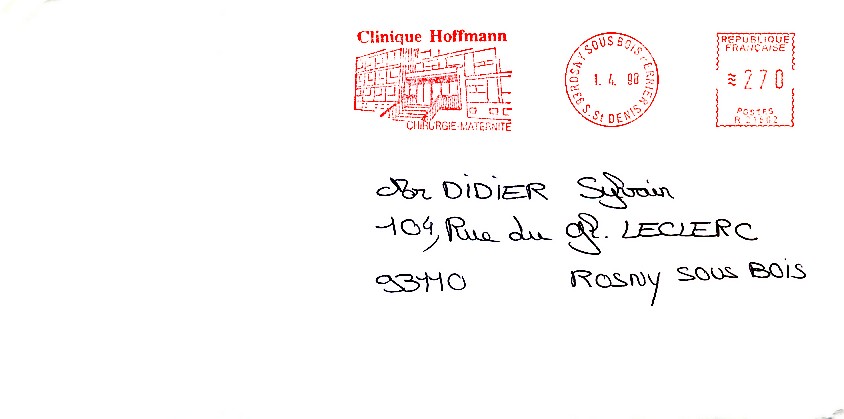 Clinique Hoffmann
CHIRURGIE-MATERNITÉ
93 ROSNY SOUS BOIS PERRIER
S. St DENIS
1. 4. 90
REPUBLIQUE
FRANÇAISE
≈ 270
POSTES
Mr DIDIER Sylvain
104, Rue du gl. LECLERC
93110 ROSNY SOUS BOIS